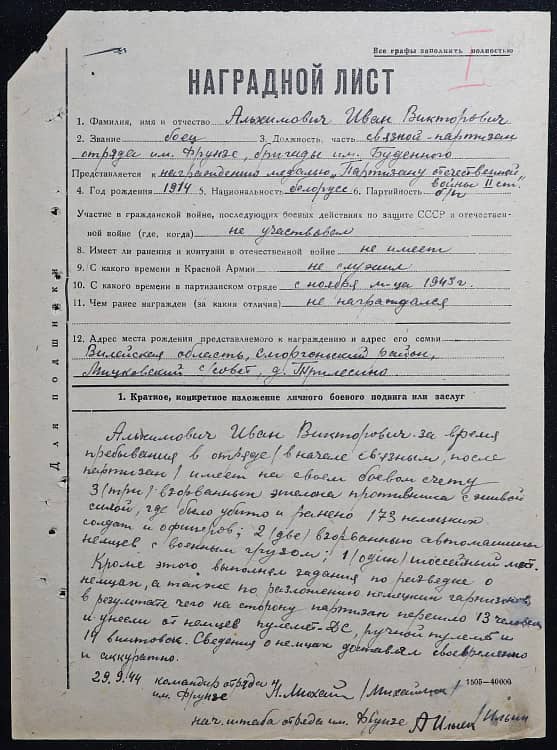 Все графы заполнять полностью
I
НАГРАДНОЙ ЛИСТ
1. Фамилия, имя и отчество Альхимович Иван Викторович
2. Звание боец 3. Должность, часть связной-партизан
отряда им. Фрунзе, бригады им. Буденного
Представляется к награждению медалью „Партизану отечественной
войны II ст."
4. Год рождения 1914 5. Национальность белорусс 6. Партийность б/п
Участие в гражданской войне, последующих боевых действиях по защите СССР и отечествен-
ной войне (где, когда) не участвовал
8. Имеет ли ранения и контузии в отечественной войне не имеет
9. С какого времени в Красной Армии не служил
10. С какого времени в партизанском отряде с ноября м-ца 1943 г.
11. Чем ранее награжден (за какия отличия) не награждался
12. Адрес места рождения представляемого к награждению и адрес его семьи
Вилейская область, Сморгоньский район,
Мицковский с/совет, д. Трилесино
Для подшивки
1. Краткое, конкретное изложение личного боевого подвига или заслуг
Альхимович Иван Викторович за время
пребывания в отряде (в начале связным, после
партизан) имеет на своем боевом счету
3 (три) взорванных эшелона противника с живой
силой, где было убито и ранено 173 немецких
солдат и офицеров; 2 (две) взорванные автомашины
немцев с военным грузом; 1 (один) шоссейный мост.
Кроме этого выполнял задания по разведке о
немцах, а также по разложению немецких гарнизонов
в результате чего на сторону партизан перешло 13 человек
и унесли от немцев пулемет-ДС, ручной пулемет и
14 винтовок. Сведения о немцах доставлял своевременно
и аккуратно.
29.9.44 командир отряда
им. Фрунзе /Михайлов/
1505—40000
нач. штаба отряда им. Фрунзе АИльин /Ильин